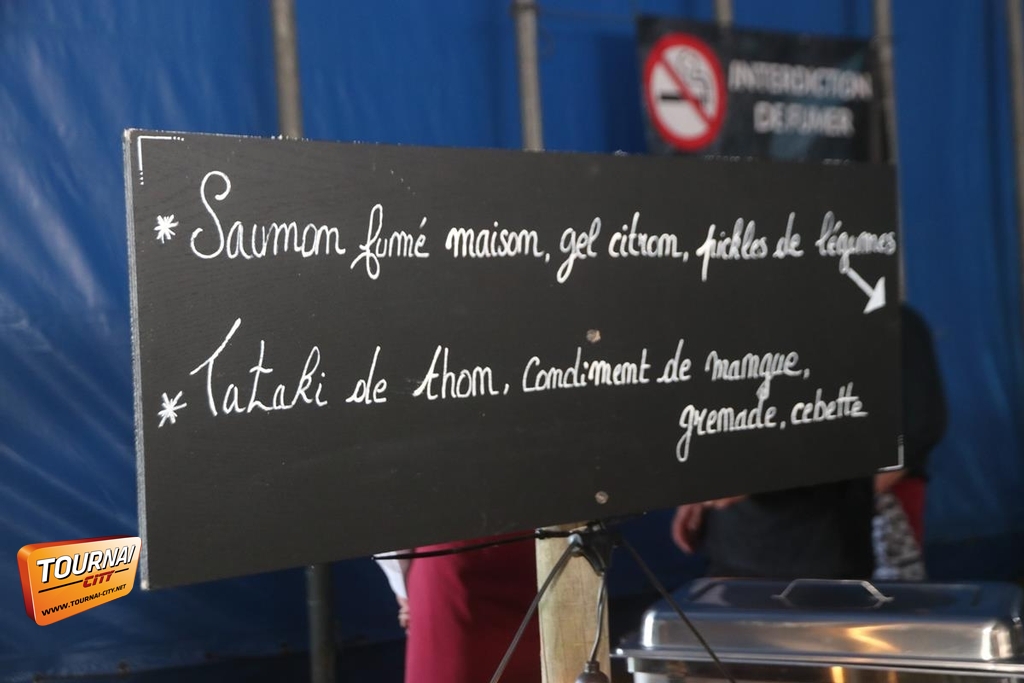 INTERDICTION
DE FUMER
* Saumon fumé maison, gel citron, pickles de légumes
* Tataki de thon, Condiment de mangue,
grenade, cebette
TOURNAI
CITY
WWW.TOURNAI-CITY.NET